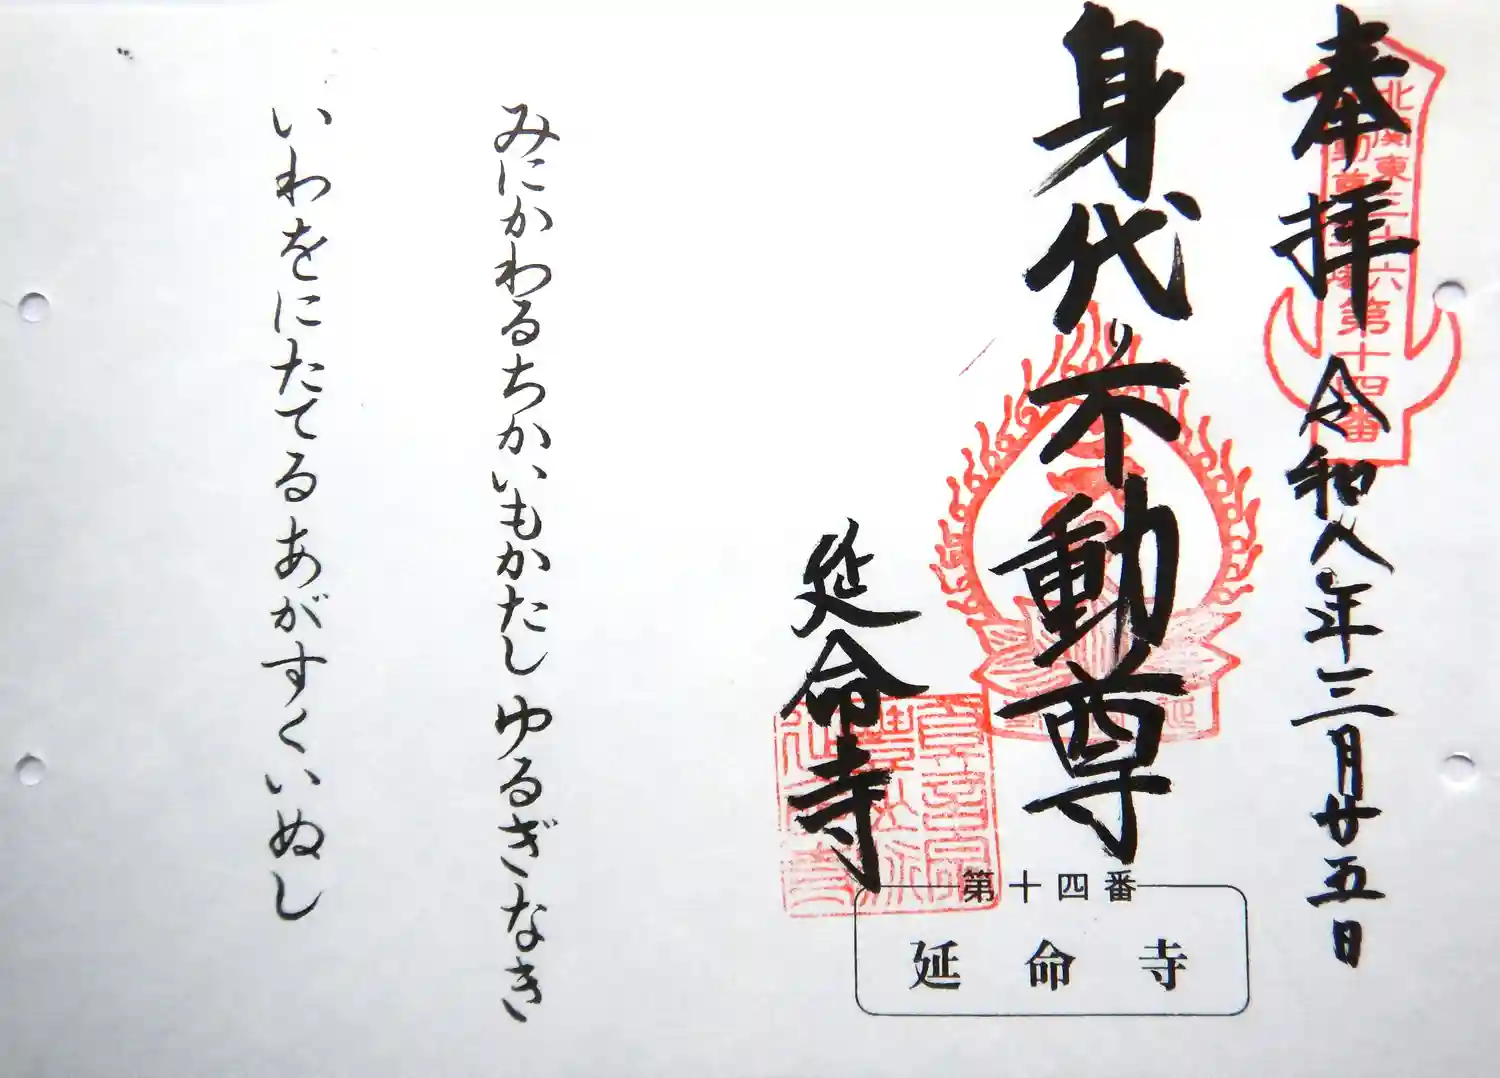 奉拝 令和八年三月廿五日
北関東三十六
不動尊霊場
第十四番
身代り不動尊
延命寺
第十四番
延命寺
みにかわるちかいもかたしゆるぎなき
いわをにたてるあがすくいぬし